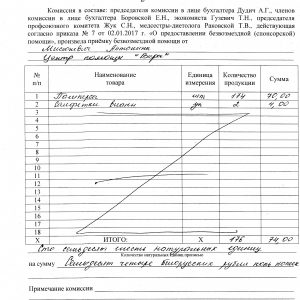 Комиссия в составе: председателя комиссии в лице бухгалтера Дудич А.Г., членов
комиссии в лице бухгалтера Боровской Е.Н., экономиста Гузевич Т.Н., председателя
профсоюзного комитета Жук С.Н., медсестры-диетолога Раковской Т.В., действующая
согласно приказа № 7 от 02.01.2017 г. «О предоставлении безвозмездной (спонсорской)
помощи», произвела приёмку безвозмездной помощи от
Центр помощи
№ п/п Наименование товара Единица измерения Количество продукции Сумма
1 Памперс шт 174 70,00
2 Салфетки уп 2 4,00
3
4
5
6
7
8
9
10
11
12
13
14
15
16
17
18
Х ИТОГО: Х 176 74,00
Сто семьдесят шесть натуральных единиц
Количество натуральных единиц прописью
на сумму Семьдесят четыре белорусских рубля ноль копеек
Примечание комиссии